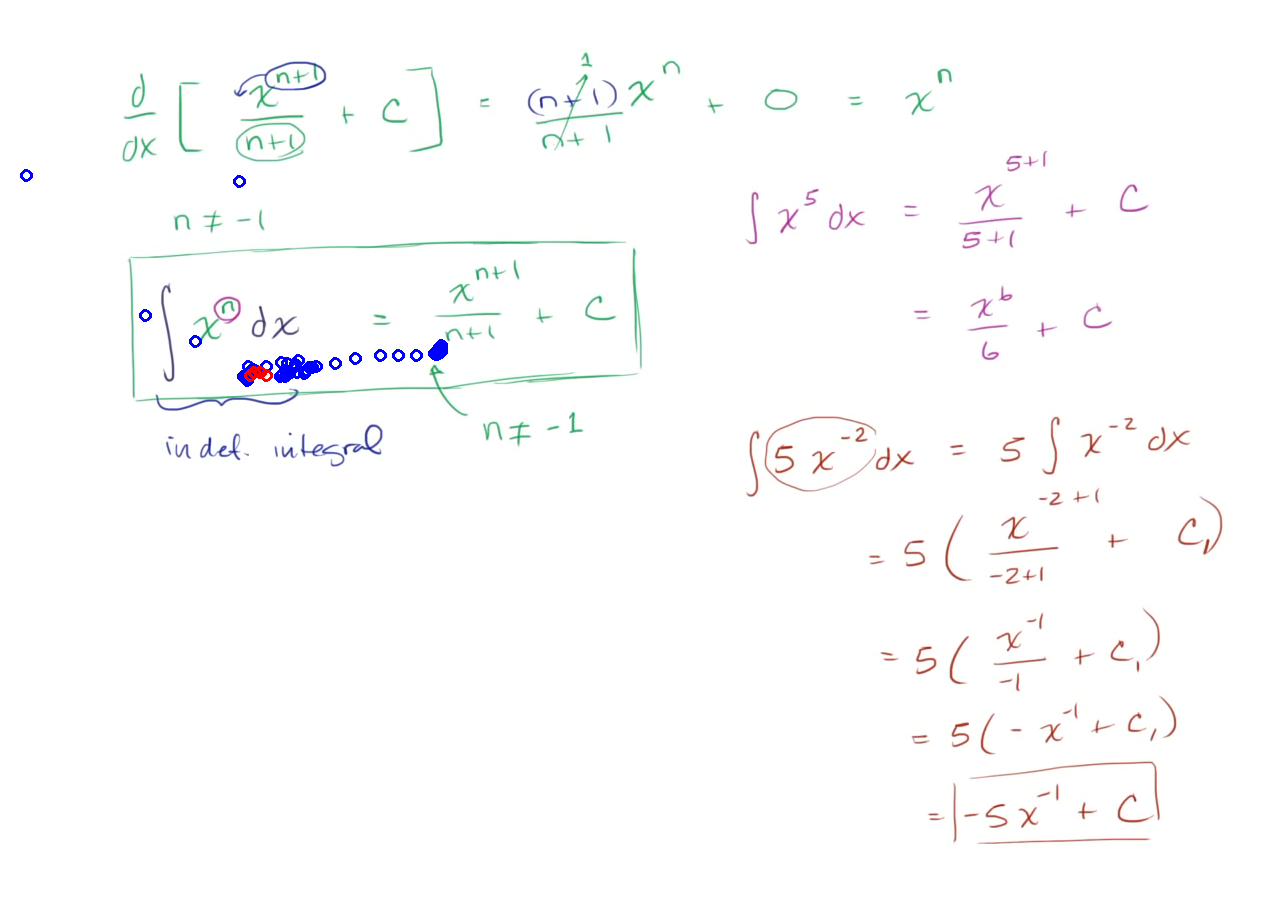 d/dx [ x^(n+1)/(n+1) + C ] = (n+1)/(n+1) 1 x^n + 0 = x^n
n ≠ -1
∫ x^n dx = x^(n+1)/(n+1) + C
n ≠ -1
indef. integral
∫ x^5 dx = x^(5+1)/(5+1) + C
= x^6/6 + C
∫ 5 x^(-2) dx = 5 ∫ x^(-2) dx
= 5 ( x^(-2+1)/(-2+1) + C₁)
= 5 ( x^(-1)/(-1) + C₁)
= 5 (- x^(-1) + C₁)
= -5x^(-1) + C